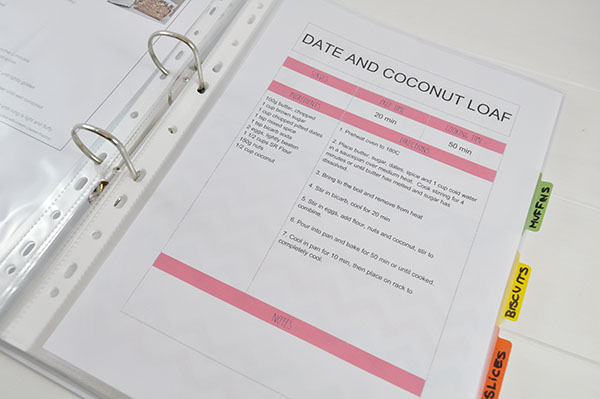 DATE AND COCONUT LOAF
SERVES
PREP TIME
COOKING TIME
20 min
50 min
INGREDIENTS
DIRECTIONS
100g butter, chopped
1 cup brown sugar
1 cup chopped pitted dates
1 tsp mixed spice
1 tsp bicarb soda
2 eggs, lightly beaten
1 1/2 cups SR Flour
150g nuts
1/2 cup coconut
1. Preheat oven to 180C
2. Place butter, sugar, dates, spice and 1 cup cold water
in a saucepan over medium heat. Cook stirring for 4
minutes or until butter has melted and sugar has
dissolved.
3. Bring to the boil and remove from heat
4. Stir in bicarb, cool for 20 min
5. Stir in eggs, add flour, nuts and coconut, stir to
combine.
6. Pour into pan and bake for 50 min or until cooked.
7. Cool in pan for 10 min, then place on rack to
completely cool.
NOTES
MUFFINS
BISCUITS
SLICES